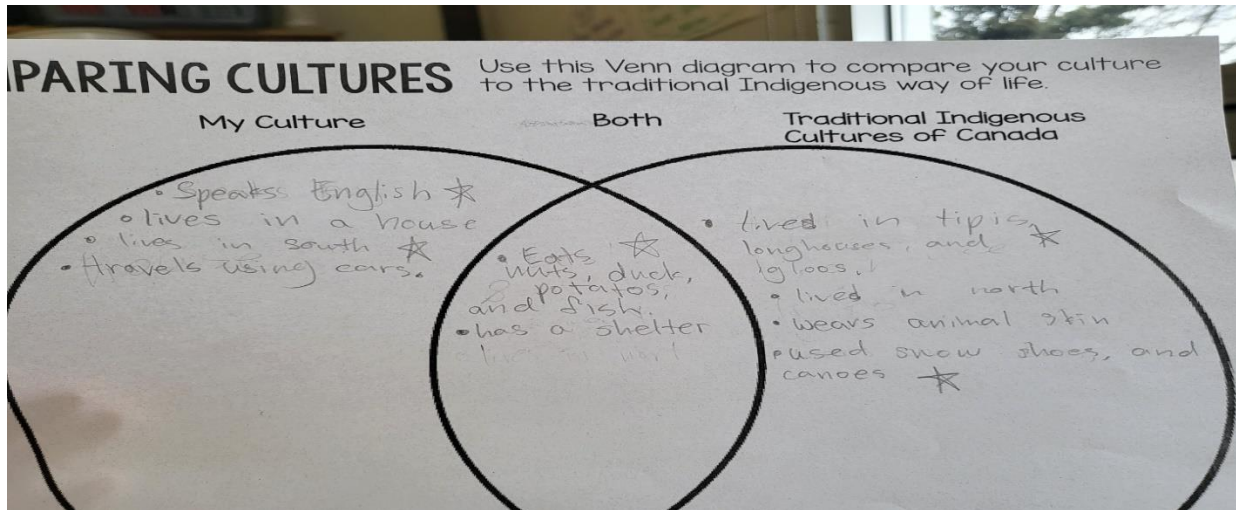 PARING CULTURES
Use this Venn diagram to compare your culture
to the traditional Indigenous way of life.
My Culture
Both
Traditional Indigenous
Cultures of Canada
• Speaks English ☆
• lives in a house
• lives in south ☆
• travels using cars.
• Eats ☆
nuts, duck,
potatos,
and fish.
• has a shelter
• lived in tipis,
longhouses, and ☆
igloos.
• lived in north
• wears animal skin
• used snow shoes, and
canoes ☆